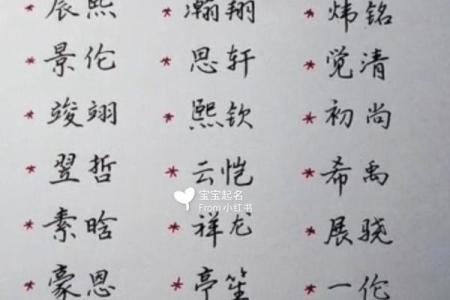 * 辰熙 * 瀚翔 * 炜铭
* 景伦 * 思轩 * 觉清
* 竣翊 * 熙钦 * 初尚
* 翌哲 * 云恺 * 希禹
宝宝起名
From 小红书
* 素晗 * 祥龙 * 展骁
* 豪恩 * 亭笙 * 一伦